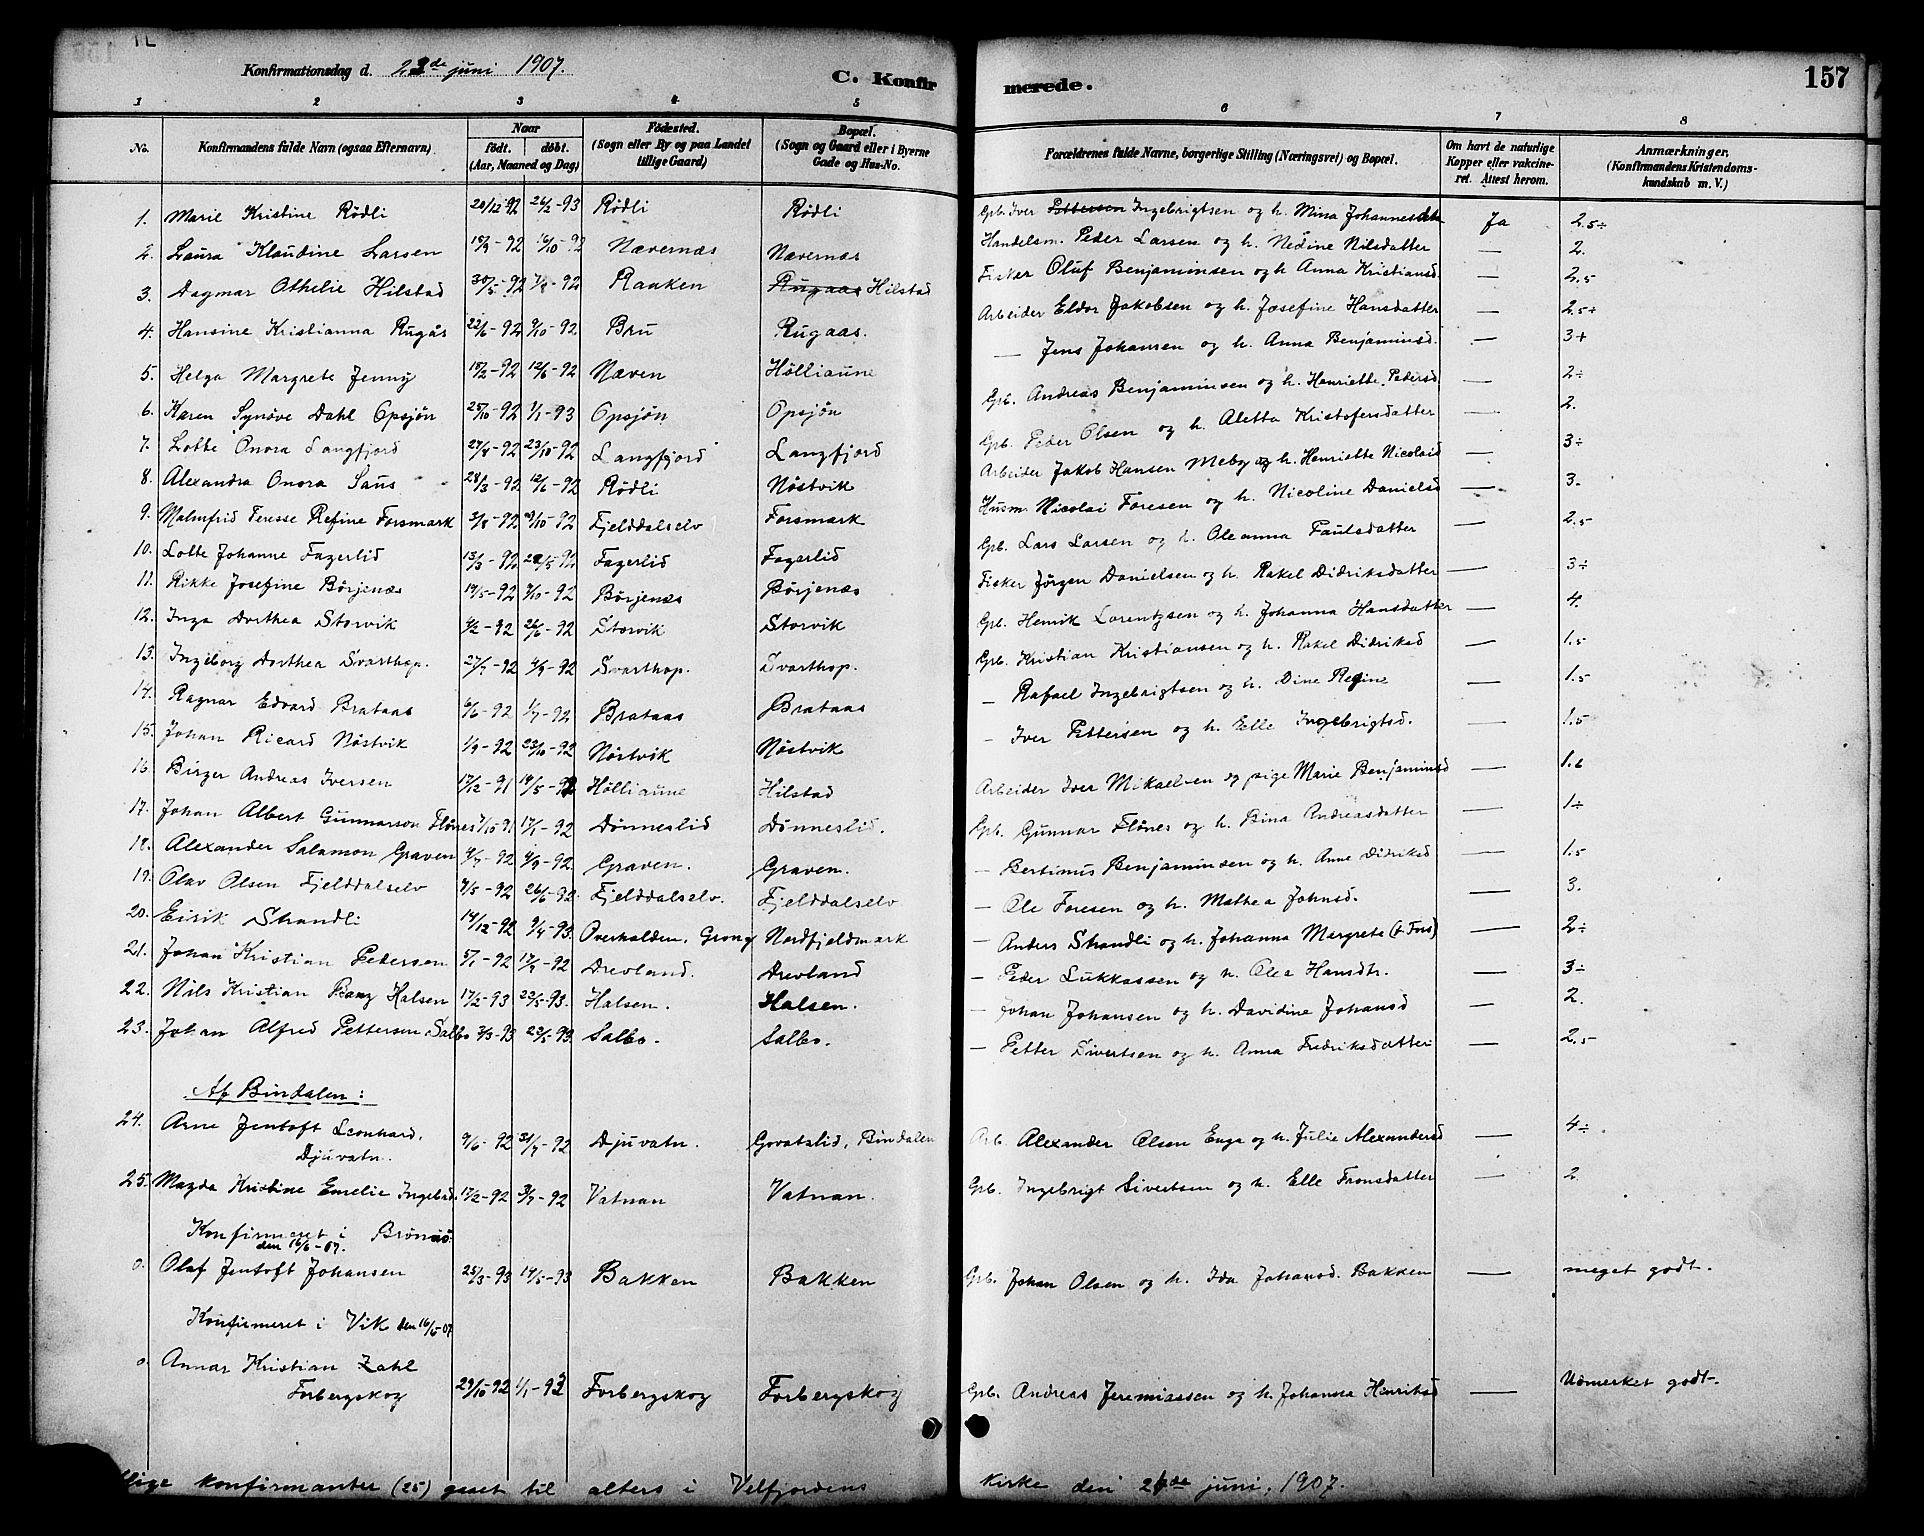 Konfirmationsdag d. 23de juni 1907.
C. Konfirmerede.
157
1 2 3 4 5 6 7 8
No.
Konfirmandens fulde Navn (ogsaa Efternavn)
Naar
født. døbt.
(Aar, Maaned og Dag)
Fødested.
(Sogn eller By og paa Landet tillige Gaard)
Bopæl.
(Sogn og Gaard eller i Byerne Gade og Hus-No.
Forældrenes fulde Navne, borgerlige Stilling (Næringsvei) og Bopæl.
Om havt de naturlige Kopper eller vakcineret. Attest herom.
Anmærkninger,
(Konfirmandens Kristendomskundskab m. V.)
1. Marie Kristine Rödli 20/12 92 26/2-93 Rödli Rödli Gpb. Iver Pettersen Ingebrigtsen og h. Mina Johannesdtr Ja 2.5÷
2. Laura Klaudine Larsen 18/9-92 16/10-92 Nævernæs Nævernæs Handelsm. Peder Larsen og h. Nedine Nilsdatter — 2.
3. Dagmar Othelie Hilstad 30/5-92 7/8-92 Raaken Rugaas Hilstad Fisker Oluf Benjaminsen og h Anna Kristiansd. — 2.5
4. Hansine Kristianna Rugås 22/6-92 9/10-92. Bru Rugaas. Arbeider Eldor Jakobsen og h. Josefine Hansdatter — 2.5÷
— Jens Johansen og h. Anna Benjaminsd. — 3+
5. Helga Margrete Jenny 18/2-92 12/6-92 Næven Hölliaune Gpb. Andreas Benjaminsen og h. Henriette Pedersd. — 2÷
6. Karen Synöve Dahl Opsjön 25/10-92 1/1-93 Opsjön Opsjön Gpb. Peder Olsen og h. Aletta Kristofersdatter — 2.
7. Lotte Onora Langfjord 27/8-92 23/10-92 Langfjord Langfjord Arbeider Jakob Hansen Meby og h. Henriette Nicolaid — 3÷
8. Alexandra Onora Saus 28/3-92 12/6-92 Rödli Nöstvik Husm. Nicolai Foresen og h. Nicoline Danielsd — 3.
9. Malmfrid Teresse Refine Forsmark 3/8-92 9/10-92 Fjelddalselv Forsmark Gpb. Lars Larsen og h. Oleanna Paulsdatter — 2.5
10. Lotte Johanne Fagerlid 13/3-92 22/5-92 Fagerlid Fagerlid Fisker Jörgen Danielsen og h. Rakel Didriksdatter — 3÷
11. Rikke Josefine Börjenæs 19/5-92 9/10-92 Börjenæs Börjenæs Gpb. Henrik Lorentzsen og h. Johanna Hansdatter — 4.
12. Inga Dorthea Storvik 4/2-92 26/6-92 Storvik Storvik Gpb. Kristian Kristiansen og h. Rakel Didriksd — 1.5
13. Ingeborg Dorthea Svarthop. 27/7-92 4/9-92 Svarthop. Svarthop. — Rafael Ingebrigtsen og h. Dine Regine — 1.5
14. Ragnar Edvard Brataas 6/6-92 1/7-92 Brataas Brataas — Iver Pettersen og h. Elle Ingebrigtsd. — 1.5
15. Johan Ricard Nöstvik 1/9-92 23/10-92 Nöstvik Nöstvik
16. Birger Andreas Iversen 17/12-91 19/5-92 Hölliaune Hilstad Arbeider Iver Mikaelsen og pige Marie Benjaminsd — 1.6
17. Johan Albert Gunnarson Flönes 7/10-91 17/1-92 Dönneslid Dönneslid. Gpb. Gunnar Flönes og h. Bina Andreasdatter — 1÷
18. Alexander Salamon Graven 4/7-92 4/9-92. Graven. Graven. — Bertinus Benjaminsen og h. Anne Didriksd — 1.5
19. Olav Olsen Fjelddalselv 4/5-92 26/6-92. Fjelddalselv. Fjelddalselv — Ole Foresen og h. Mathea Johnsd. — 3.
20. Eirik Strandli 14/12-92 9/4-93. Overhalden, Grong Nordfjeldmark — Anders Strandli og h. Johanna Margrete (f. Fors) — 2÷
21. Johan Kristian Pedersen 5/1-92 17/7-92 Drevland. Drevland — Peder Lukkassen og h. Olea Hansdtr. — 3÷
22. Nils Kristian Rang Halsen 17/2-93 22/5-93. Halsen. Halsen. — Johan Johansen og h. Davidine Johansd — 2.
23. Johan Alfred Pettersen Salbo 3/3-93 22/5-93 Salbo. Salbo. — Petter Sivertsen og h. Anna Fredriksdatter — 2.5
Af Bindalen:
24. Arne Jentoft Leonhard, Djuvatn. 9/6-92 31/7-92 Djuvatn. Govatslid, Bindalen Arb. Alexander Olsen Enge og h. Julie Alexandersd — 4÷
25. Magda Kristine Emelie Ingebrd. 17/2-92 3/7-92 Vatnan Vatnan. Gpb. Ingebrigt Sivertsen og h. Elle Fronsdatter — 2
Konfirmeret i Brönnö
den 16/6-07.
0. Olaf Jentoft Johansen 25/3-93 14/5-93 Bakken Bakken Gpb. Johan Olsen og h. Ida Johansd. Bakken — meget godt.
Konfirmeret i Vik den 16/6-07
0. Annar Kristian Zahl
Forbergskog 29/10-92 1/1-93 Forbergskog Forbergskog Gpb. Andreas Jeremiassen og h. Johanna Henriksd — Udmerket godt.
konfirmanter (25) gaaet til alters i Velfjordens kirke den juni, 1907.